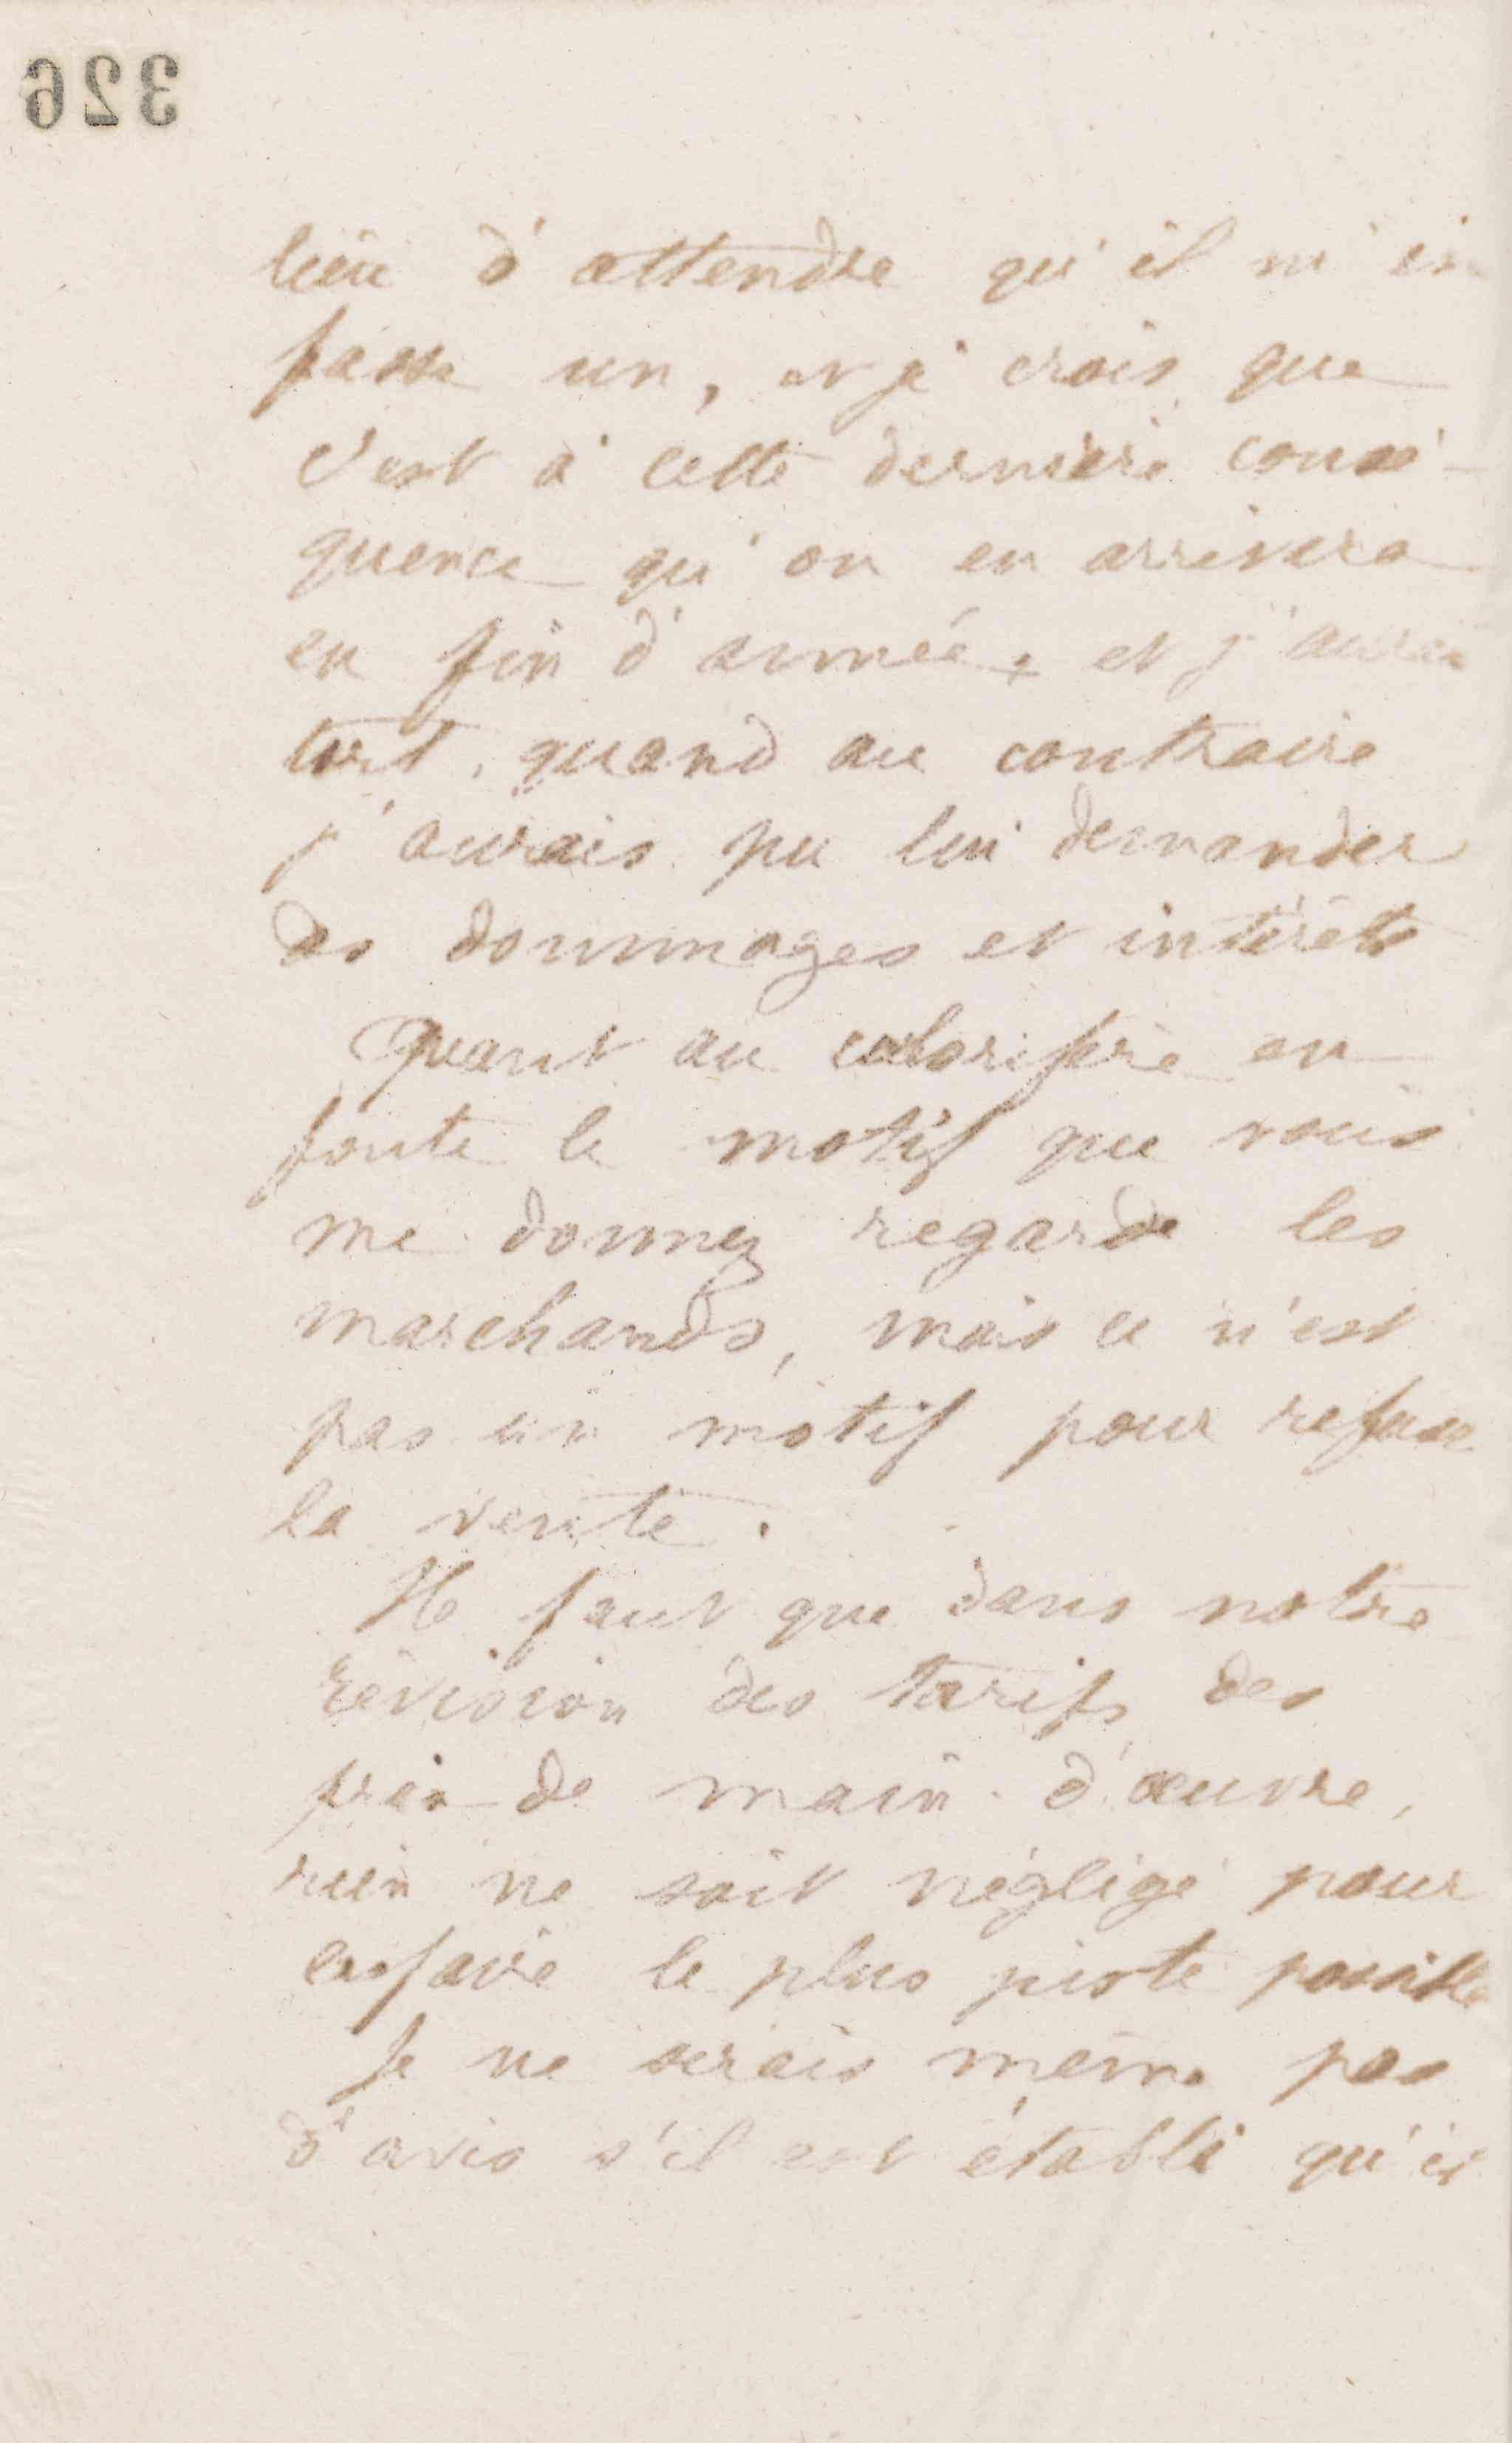 326
lieu d'attendre qu'il m'en
fasse un, et je crois que
c'est à cette dernière consé-
quence qu'on en arrivera
en fin d'année, et j'aurai
tort, quand au contraire
j'aurais pu lui demander
des dommages et intérêts
Quant au calorifère en
fonte le motif que vous
me donnez regarde les
marchands, mais ce n'est
pas un motif pour refuser
la vente.
Il faut que dans notre
révision des tarifs des
prix de main d'œuvre,
rien ne soit négligé pour
les faire le plus juste possible
Je ne serais même pas
d'avis s'il est établi qu'il